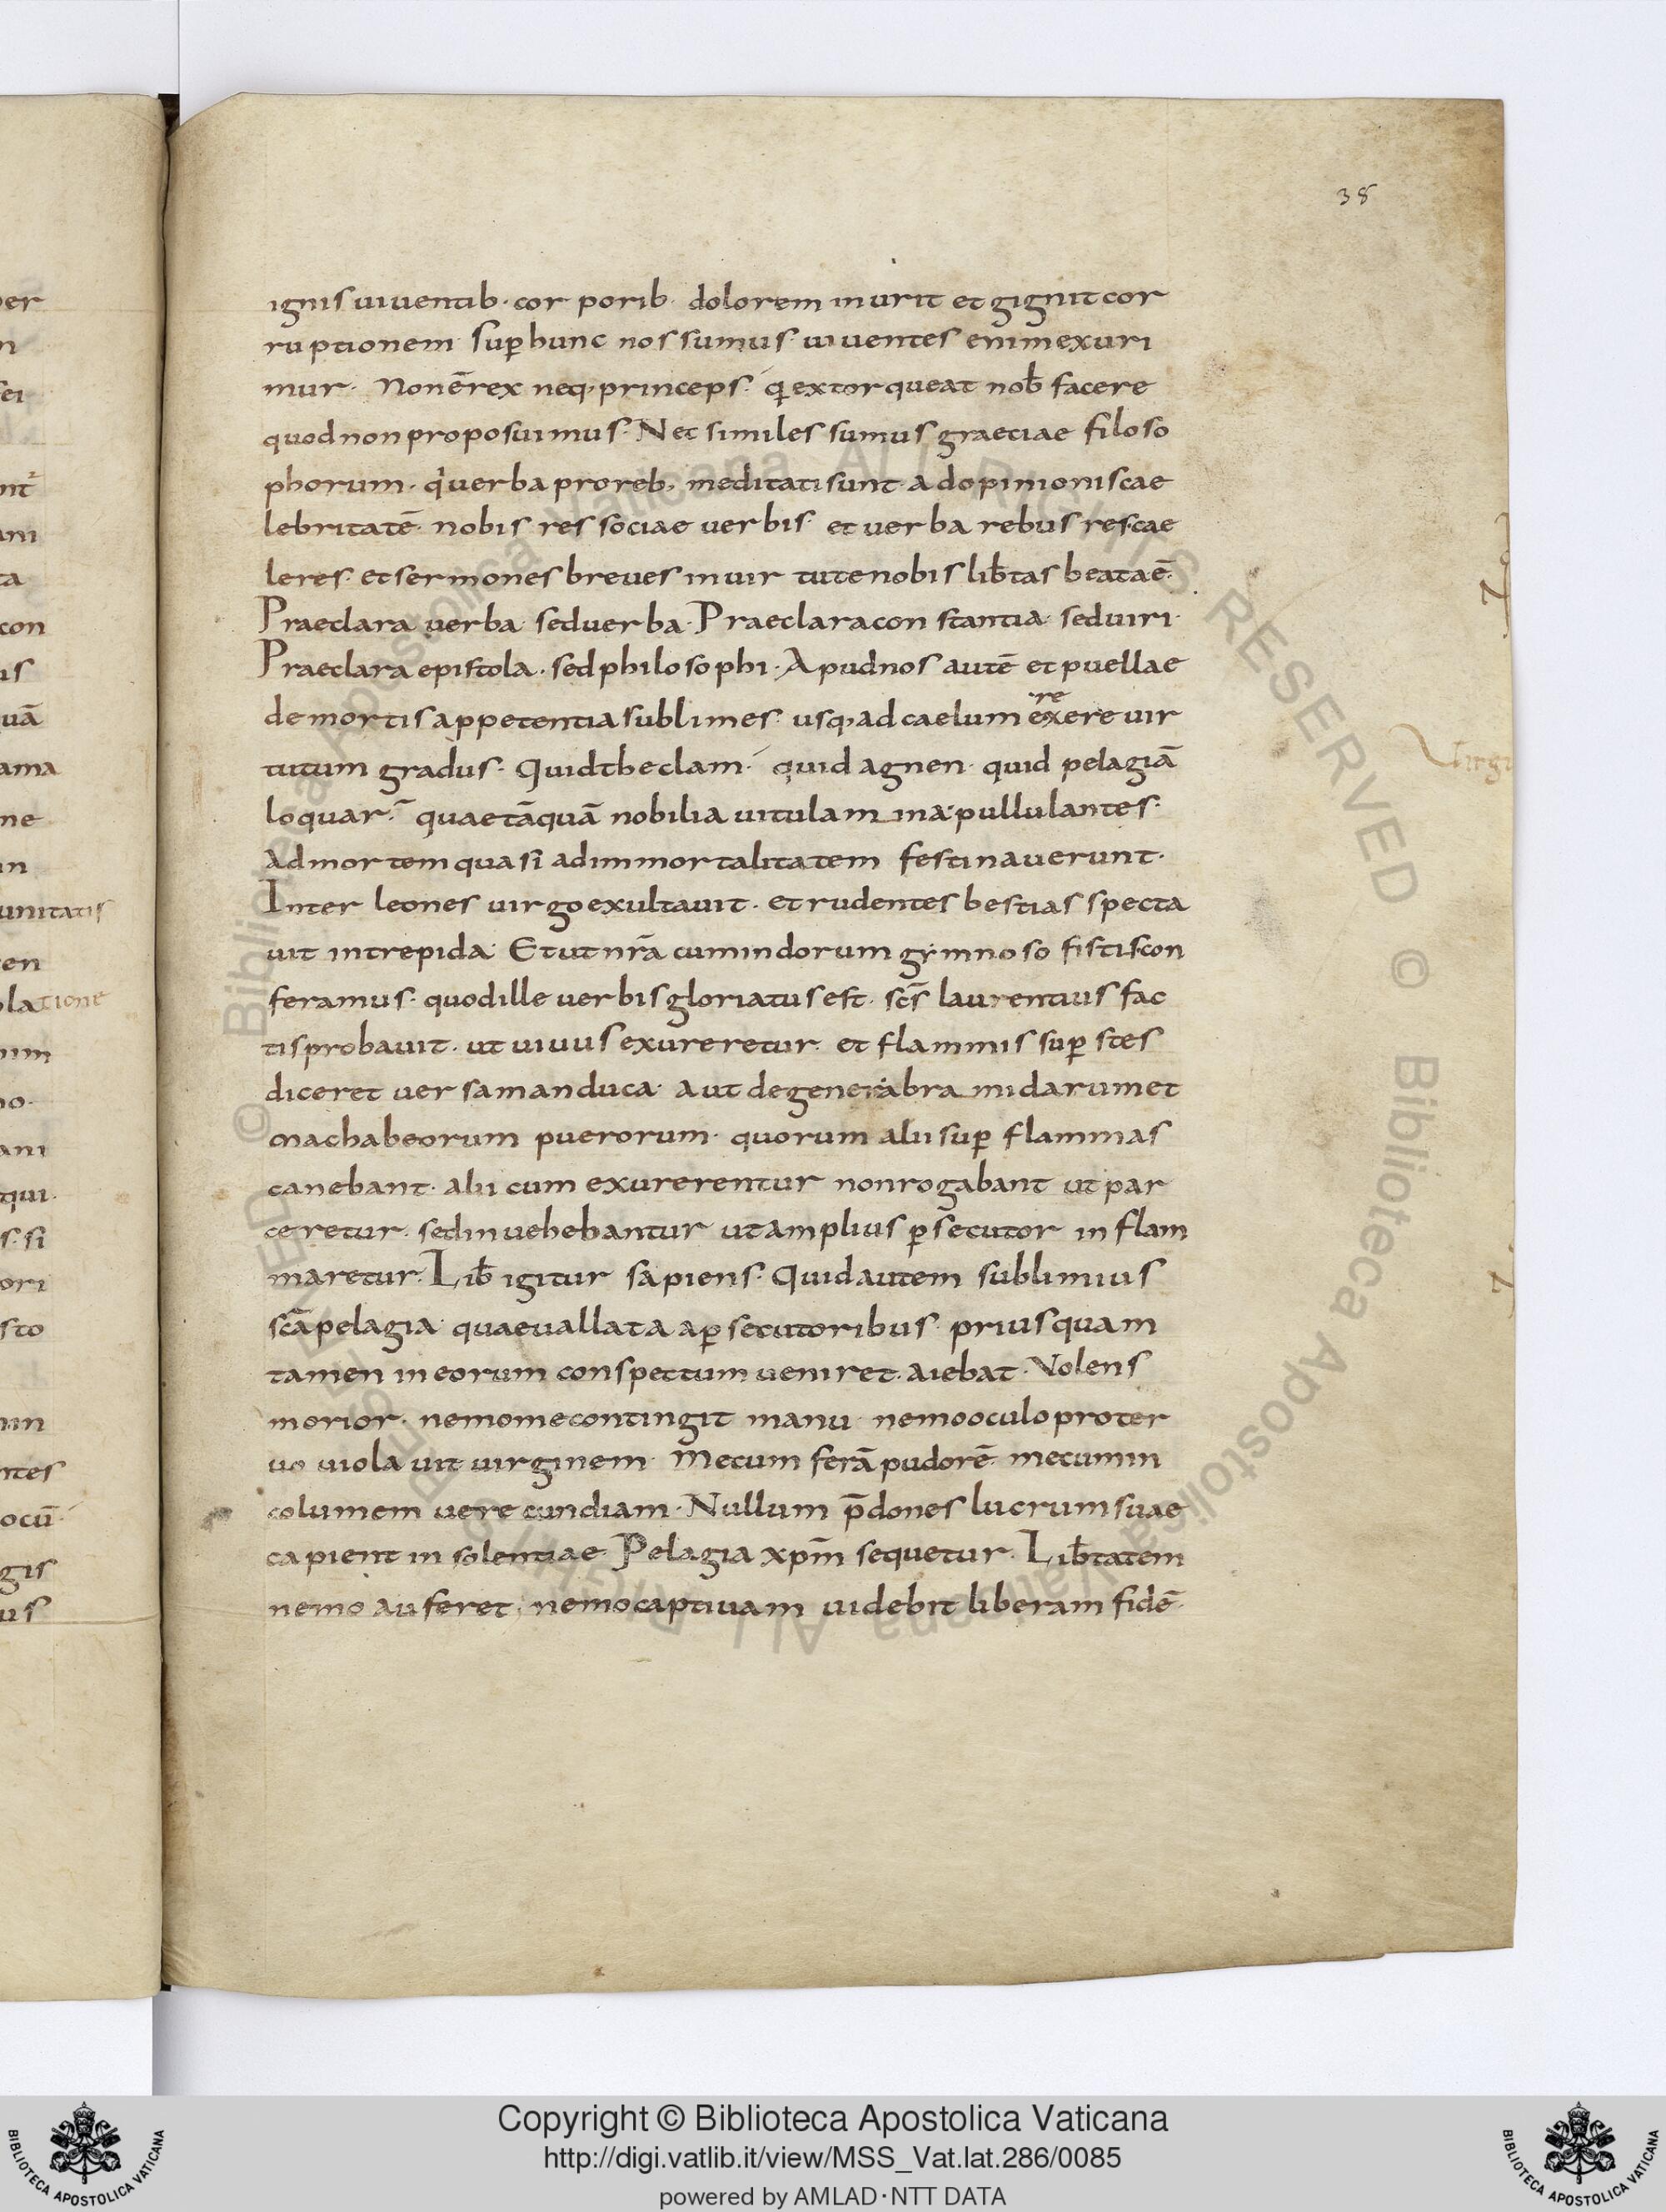 38
ignis uiuentib· cor porib· dolorem inurit et gignit cor
ruptionem sup̄ hunc nos sumus· uiuentes enim exuri
mur· Non ē rex neq; princeps· qi extorqueat nob̄ facere
quod non proposuimus· Nec similes sumus graeciae filoso
phorum· qi uerba pro reb; meditati sunt· ad opinionis cae
lebritatē· nobis res sociae uerbis· et uerba rebus res cae
leres· et sermones breues in uirtute nobis lib̄tas beata ē·
Praeclara uerba sed uerba· Praeclara constantia· sed uiri·
Praeclara epistola· sed philosophi· Apud nos autē et puellae
de mortis appetentia sublimes· usq; ad caelum exere uir
re
tutum gradus· Quid theclam· quid agnen· quid pelagiā
loquar· quae tāquā nobilia uitulamina· pullulantes·
Ad mortem quasi ad immortalitatem festinauerunt·
Inter leones uirgo exultauit· et rudentes bestias specta
uit intrepida· Et ut nr̄a cum indorum gymnosofistis con
feramus· quod ille uerbis gloriatus est· scs̄ laurentius fac
tis probauit· ut uiuus exureretur· et flammis sup̄stes
diceret uersa manduca· aut de genere abramidarum et
machabeorum puerorum· quorum alii sup̄ flammas
canebant· alii cum exurerentur non rogabant ut par
ceretur· sed inuehebantur ut amplius p̄secutor inflam
maretur· Lib̄ igitur sapiens· Quid autem sublimius
scā pelagia· quae uallata a p̄secutoribus· priusquam
tamen in eorum conspectum ueniret· aiebat· Volens
morior· nemo me contingit manu· nemo oculo proter
uo uiolauit uirginem· Mecum ferā pudorē· mecum in
columem uerecundiam· Nullum p̄dones lucrum suae
capient insolentiae· Pelagia xpm̄ sequetur· Lib̄tatem
nemo auferet· nemo captiuam uidebit liberam fidē·
Copyright © Biblioteca Apostolica Vaticana
http://digi.vatlib.it/view/MSS_Vat.lat.286/0085
powered by AMLAD·NTT DATA
BIBLIOTECA APOSTOLICA VATICANA
BIBLIOTECA APOSTOLICA VATICANA